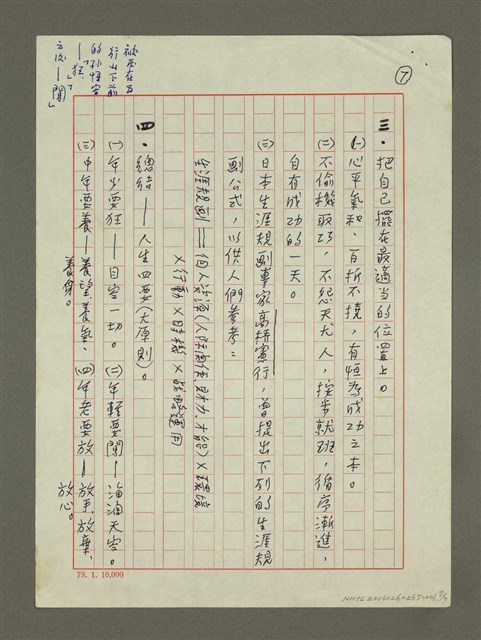 7
三．把自己擺在最適當的位置上。
(一)心平氣和、百折不撓，有恒為成功之本。
(二)不偷機取巧，不怨天尤人，按步就班，循序漸進，
自有成功的一天。
(三)日本生涯規劃專家高橋憲行，曾提出下列的生涯規
劃公式，以供人們參考：
生涯規劃＝個人資源(人際關係財力、才能)×環境
×行動×時機×
四．總結——人生四要(大原則)。
(一)年少要狂——目空一切。(二)年輕要闖——海濶天空。
(三)中年要養——養望、養氣、
養身。
(四)年老要放——放手、放棄、
放心。
被壓在五
行山下前
的孙悟空
—「狂」
之後—「闖」
79. 1. 10,000